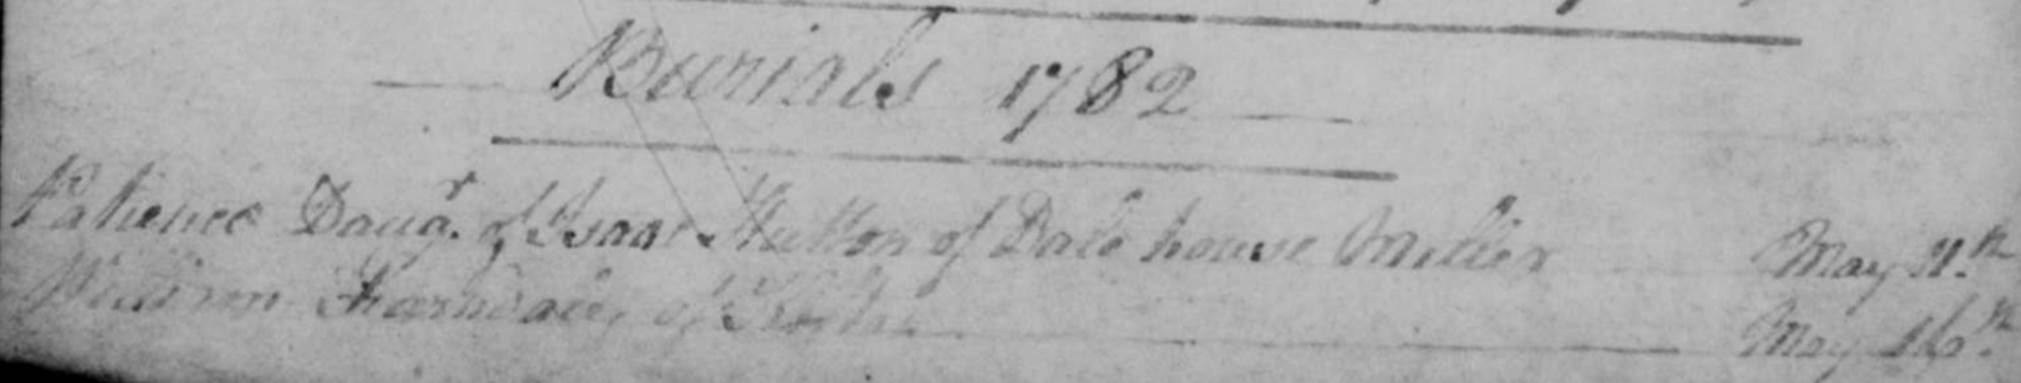 Burials 1782
Patience Daugr. of Isaac Hutton of Dale house Miller May 11.th
William Farndale, of May 16.th